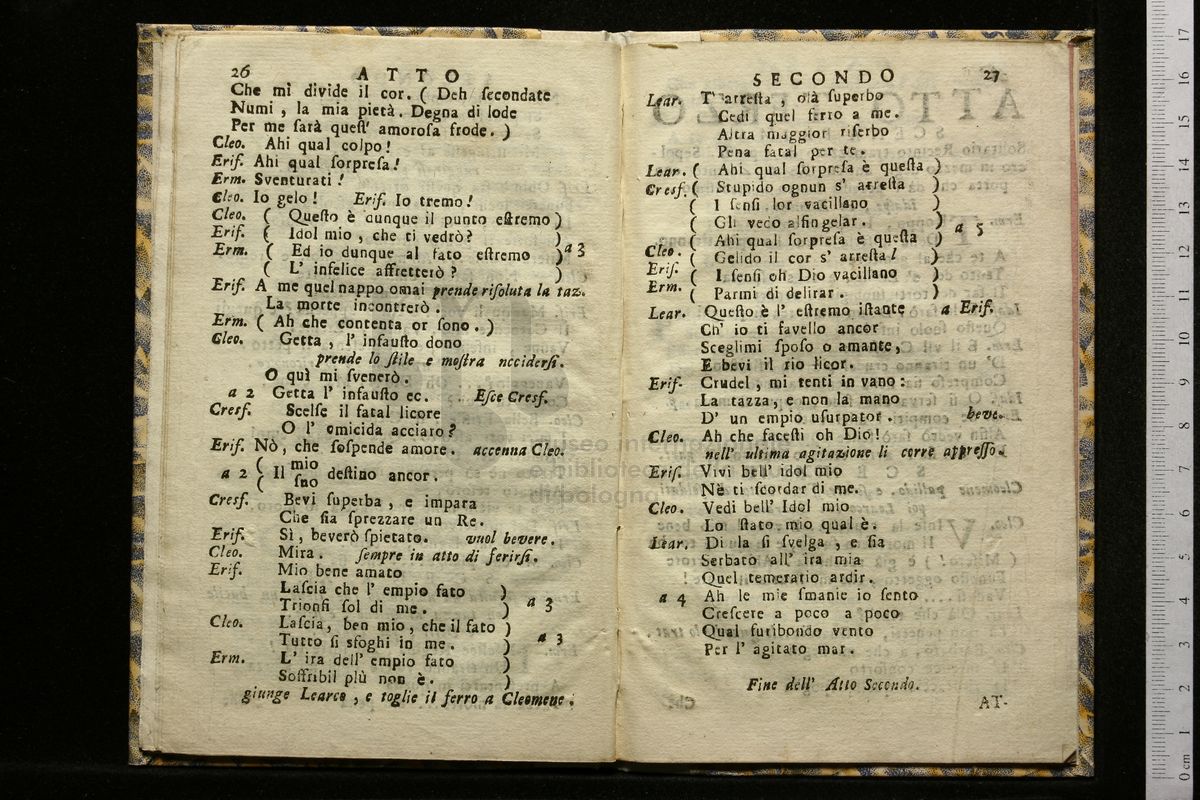 26 ATTO
Che mi divide il cor. ( Deh ſecondate
Numi , la mia pietà. Degna di lode
Per me ſarà queſt' amoroſa frode. )
Cleo. Ahi qual colpo!
Eriſ. Ahi qual ſorpreſa!
Erm. Sventurati!
Cleo. Io gelo! Eriſ. Io tremo!
Cleo. ( Queſto è dunque il punto eſtremo )
Eriſ. ( Idol mio , che ti vedrò? )
Erm. ( Ed io dunque al fato eſtremo ) a 3
( L' infelice affretterò ? )
Eriſ. A me quel nappo omai prende riſoluta la taz.
La morte incontrerò .
Erm. ( Ah che contenta or ſono . )
Cleo. Getta , l' infauſto dono
prende lo ſtile e moſtra ucciderſi.
O quì mi ſvenerò.
a 2 Getta l' infauſto ec. Eſce Creſf.
Creſf. Scelſe il fatal licore
O l' omicida acciaro?
Eriſ. Nò, che ſoſpende amore. accenna Cleo.
a 2 ( Il mio
( ſuo deſtino ancor.
Creſf. Bevi ſuperba , e impara
Che ſia ſprezzare un Re.
Eriſ. Sì, beverò ſpietato. vuol bevere.
Cleo. Mira. ſempre in atto di ferirſi.
Eriſ. Mio bene amato
Laſcia che l' empio fato )
Trionfi ſol di me. ) a 3
Cleo. Laſcia, ben mio, che il fato )
Tutto ſi sfoghi in me. ) a 3
Erm. L' ira dell' empio fato )
Soffribil più non è. )
giunge Learco , e toglie il ferro a Cleomene .
SECONDO 27
Lear. T' arreſta , olà ſuperbo
Cedi quel ferro a me.
Altra maggior riſerbo
Pena fatal per te.
Lear. ( Ahi qual ſorpreſa è queſta )
Creſf. ( Stupido ognun s' arreſta )
( I ſenſi lor vacillano )
( Gli vedo alſingelar. )
( Ahi qual ſorpreſa è queſta ) a 5
Cleo. ( Gelido il cor s' arreſta! )
Eriſ. ( I ſenſi oh Dio vacillano )
Erm. ( Parmi di delirar. )
Lear. Queſto è l' eſtremo iſtante a Eriſ.
Ch' io ti favello ancor
Sceglimi ſpoſo o amante,
E bevi il rio licor.
Eriſ. Crudel , mi tenti in vano :
La tazza, e non la mano
D' un empio uſurpator. beve.
Cleo. Ah che faceſti oh Dio!
nell' ultima agitazione li corre appreſſo.
Eriſ. Vivi bell' idol mio
Nè ti ſcordar di me.
Cleo. Vedi bell' Idol mio
Lo ſtato mio qual è.
Lear. Di la ſi ſvelga , e ſia
Serbato all' ira mia
Quel temerario ardir.
a 4 Ah le mie ſmanie io ſento
Creſcere a poco a poco
Qual furibondo vento
Per l' agitato mar.
Fine dell' Atto Secondo.
AT-
museo internazionale
e biblioteca della musica
di bologna
0 cm 1 2 3 4 5 6 7 8 9 10 11 12 13 14 15 16 17